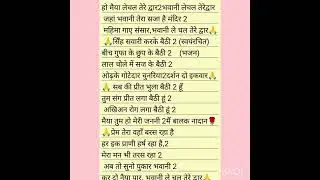 हो मैया लेचल तेरे द्वार2भवानी लेचल तेरेद्वार
जहां भवानी तेरा सजा है मंदिर 2
महिमा गाए संसार,भवानी ले चल तेरे द्वार🙏
🙏सिंह सवारी करके बैठी 2 (स्वरचित)
बीच गुफा के छुप के बैठी 2 (भजन)
लाल चोले में सज के बैठी 2
ओढ़के गोटेदार चुनरिया2दर्शन दो इकवार🙏
🙏 सब की प्रीत भुला बैठी हूँ 2
तुम संग प्रीत लगा बैठी हूं 2
अखिंअन रोग लगा बैठी हूं 2
मैया तुम हो मेरी जननी 2मैं बालक नादान🌹
🙏प्रेम तेरा वहाँ बरस रहा है
हर इक प्राणी हर्ष रहा है,2
मेरा मन भी तरस रहा 2
अब तो सुनो पुकार भवानी 2
कर दो मैया पार, भवानी ले चल तेरे द्वार🙏